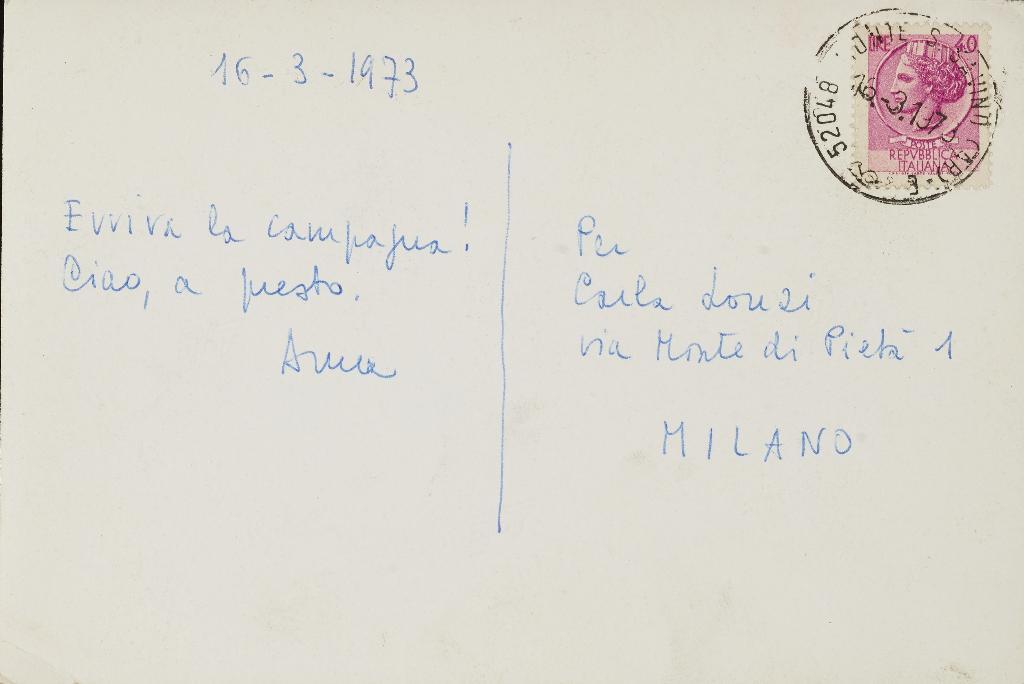 16 - 3 - 1973
Evviva la campagna!
Ciao, a presto.
Anna
Per
Carla Lonzi
via Monte di Pietà 1
MILANO
LIRE 40
POSTE
REPVBBLICA
ITALIANA
52048 MONTE S. SAVINO (AR)
16.-3.1973